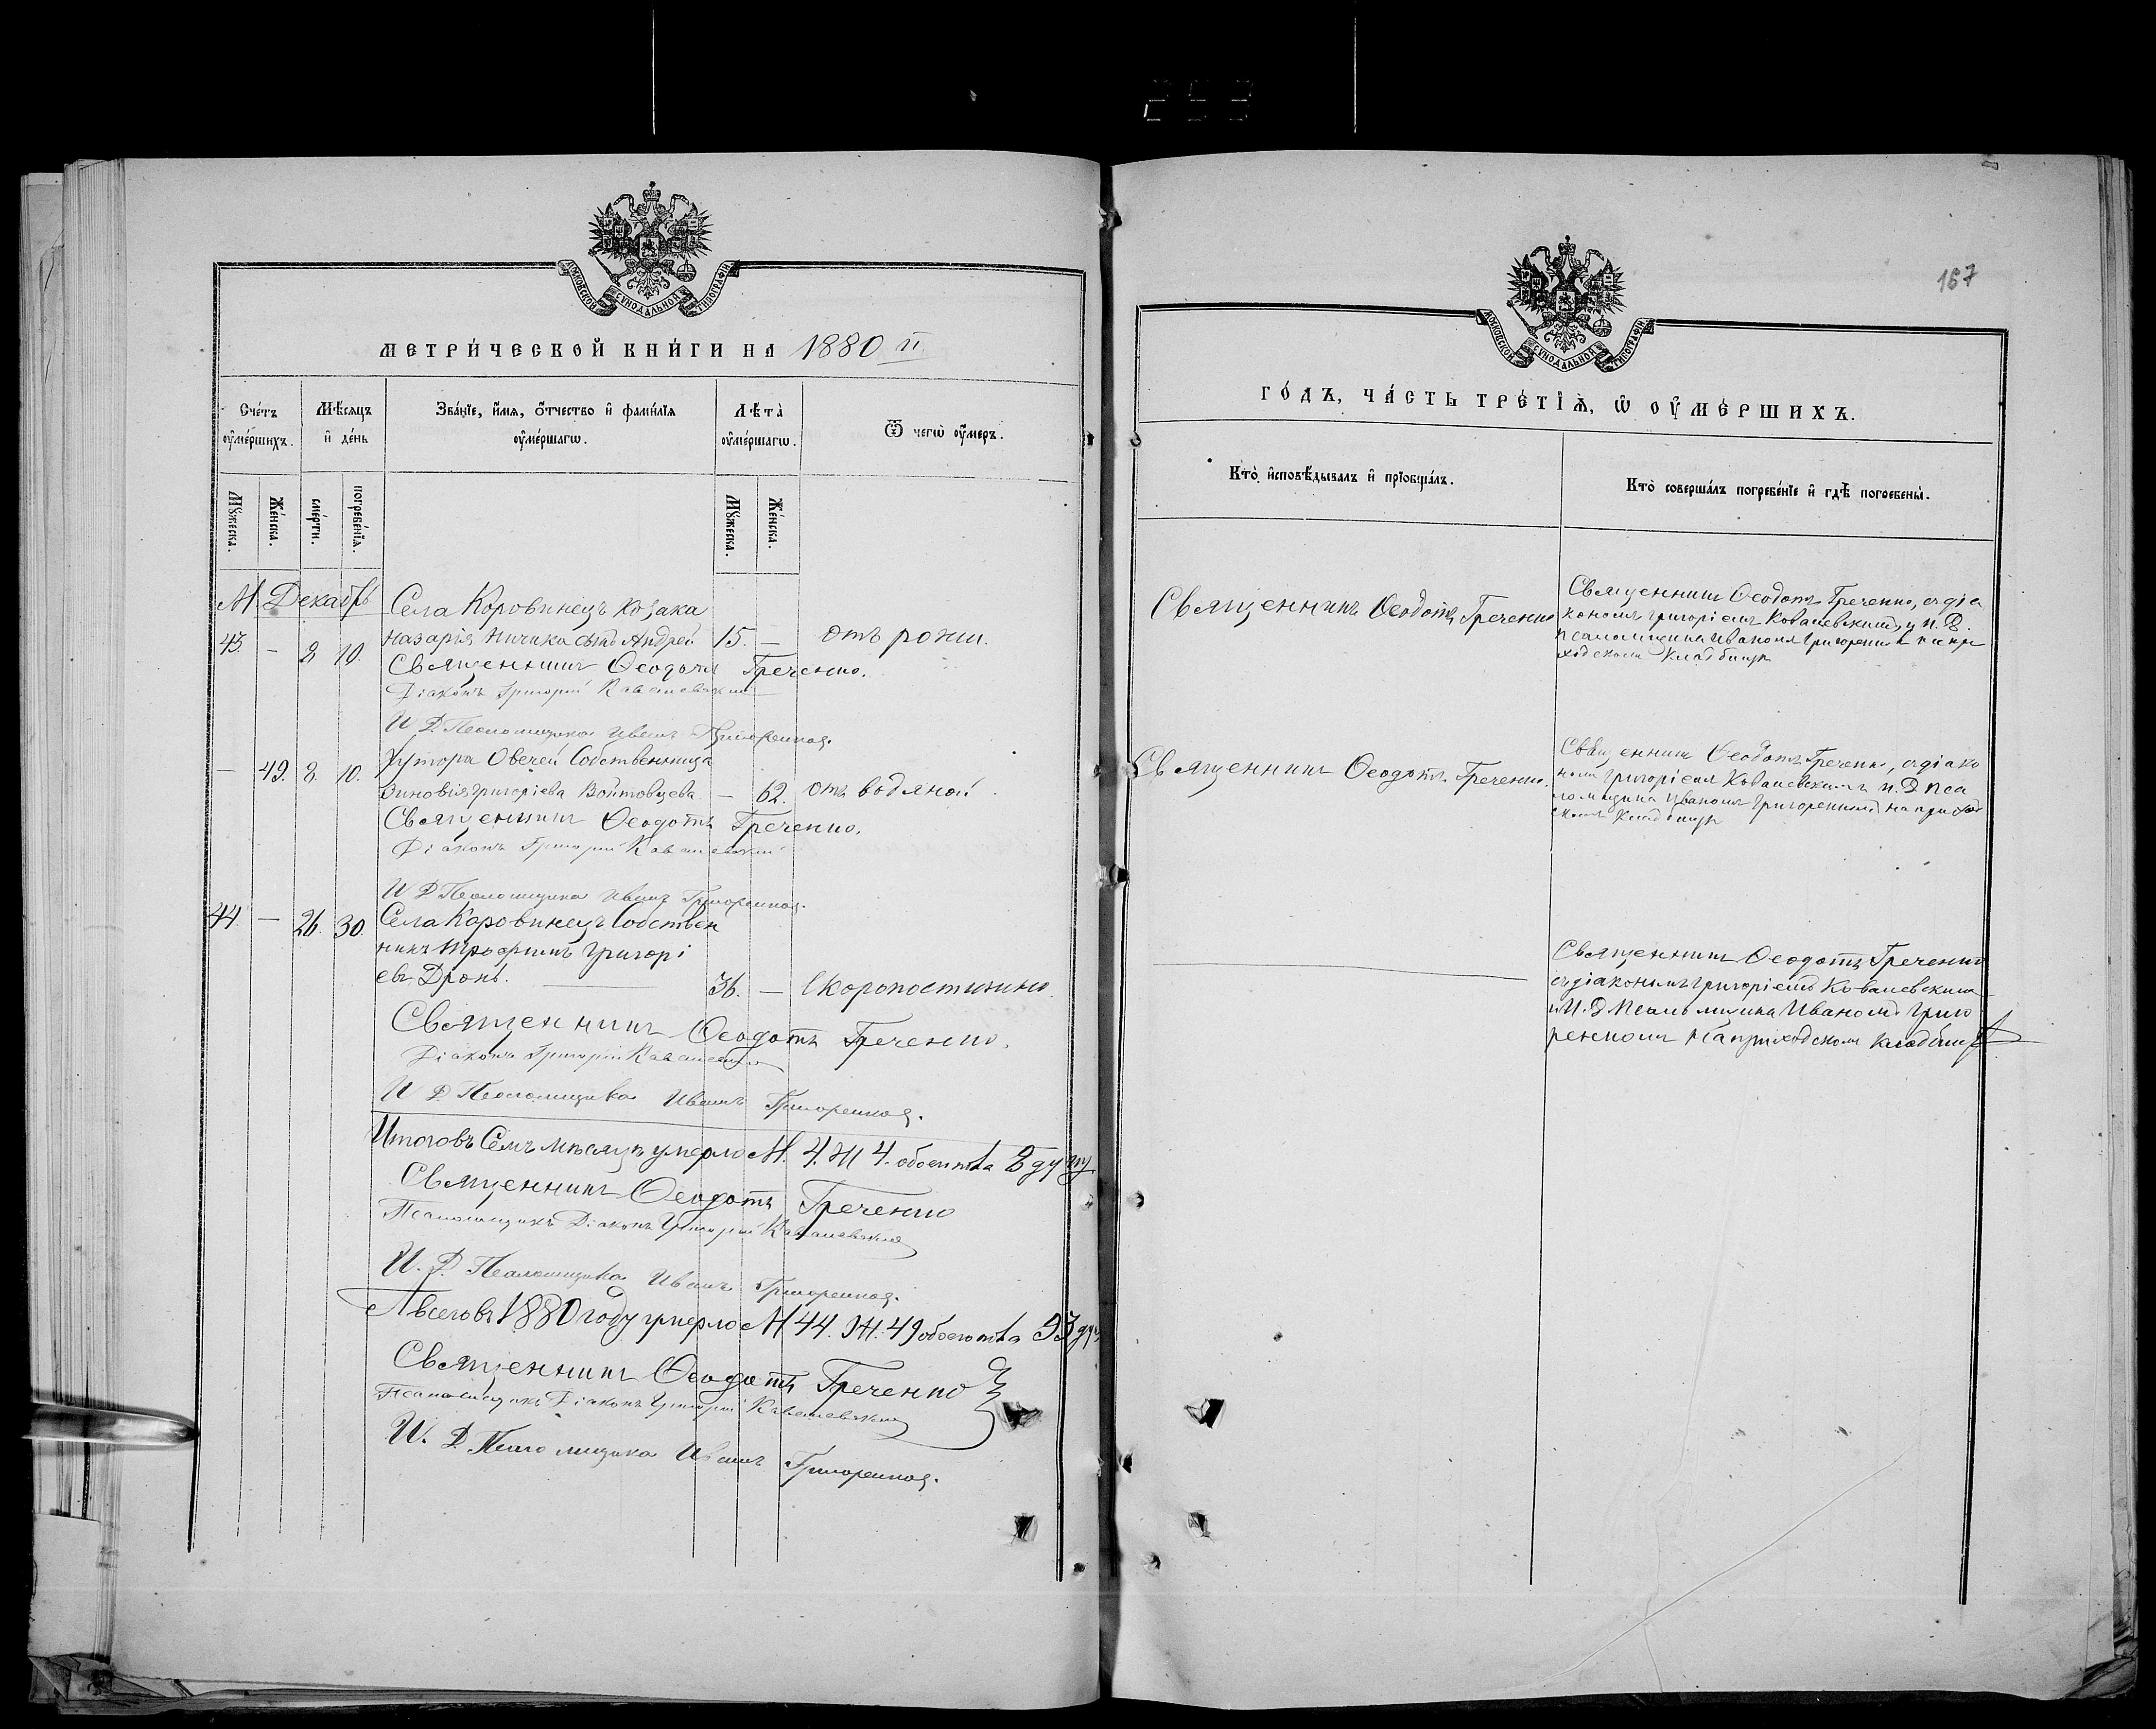 МОСКОВСКОЙ СУНОДАЛЬНОЙ ТИПОГРАФІИ
МЕТРИ́ЧЕСКОЙ КНИ́ГИ НА 1880 й
Сче́тъ оу҆ме́ршихъ.
Мѣ́сяцъ и҆ де́нь
Зва́нїе, и҆́мя, ѻ҆́тчество и҆ фами́лїя оу҆ме́ршагѡ.
Лѣ́та оу҆ме́ршагѡ.
Ѿ чегѡ̀ оу҆́меръ.
Мꙋ́жеска.
Же́нска.
сме́рти.
погребе́нїѧ.
Мꙋ́жеска.
Же́нска.
М. Декабрь
Села Коровинецъ козака
43. — 8 10. Назарія Ничика сынъ Андрей 15. — отъ рожи.
Священникъ Ѳеодотъ Греченко.
Діаконъ Григорій Ковалевскій
И Д. Псаломщика Иванъ Григоренко.
Хутора Овечей Собственница
— 49. 8. 10. Зиновія Григоріева Войтовцева — 62. отъ водяной.
Священникъ Ѳеодотъ Греченко.
Діаконъ Григорій Ковалевскій
И Д Псаломщика Иванъ Григоренко.
44. — 26. 30. Села Коровинецъ Собствен
никъ Трофимъ Григорі
евъ Дронь. 36. — Скоропостижно.
Священникъ Ѳеодотъ Греченко.
Діаконъ Григорій Ковалевскій
И Д Псаломщика Иванъ Григоренко.
Итого въ Семъ мѣсяцѣ умерло М. 4. Ж 4. обоего пола 8 душъ
Священникъ Ѳеодотъ Греченко
Псаломщикъ Діаконъ Григорій Ковалевскій
И. Д. Псаломщика Иванъ Григоренко.
А всего въ 1880 году умерло М 44. Ж. 49 обоего пола 93 душ
Священникъ Ѳеодотъ Греченко
Псаломщикъ Діаконъ Григорій Ковалевскій
И. Д. Псаломщика Иванъ Григоренко.
167
МОСКОВСКОЙ СУНОДАЛЬНОЙ ТИПОГРАФІИ
ГО́ДЪ, ЧА́СТЬ ТРЕ́ТЇѦ, Ѡ҆ ОУ҆МЕ́РШИХЪ.
Кто̀ и҆сповѣ́дывалъ и҆ прїобща́лъ.
Кто̀ соверша́лъ погребе́нїе и҆ гдѣ̀ погребены̀.
Священникъ Ѳеодотъ Греченко
Священникъ Ѳеодотъ Греченко, съ діа
кономъ Григоріемъ Ковалевскимъ и И. Д.
Псаломщика Иваномъ Григоренкомъ на при
ходскомъ кладбищѣ
Священникъ Ѳеодотъ Греченко.
Священникъ Ѳеодотъ Греченко, съ діако
номъ Григоріемъ Ковалевскимъ и. Д Пса
ломщика Иваномъ Григоренкомъ на приход
скомъ кладбищѣ
Священникъ Ѳеодотъ Греченко
съ діакономъ Григоріемъ Ковалевскимъ
и И. Д Псаломщика Иваномъ Григо
ренкомъ на приходскомъ кладбищѣ